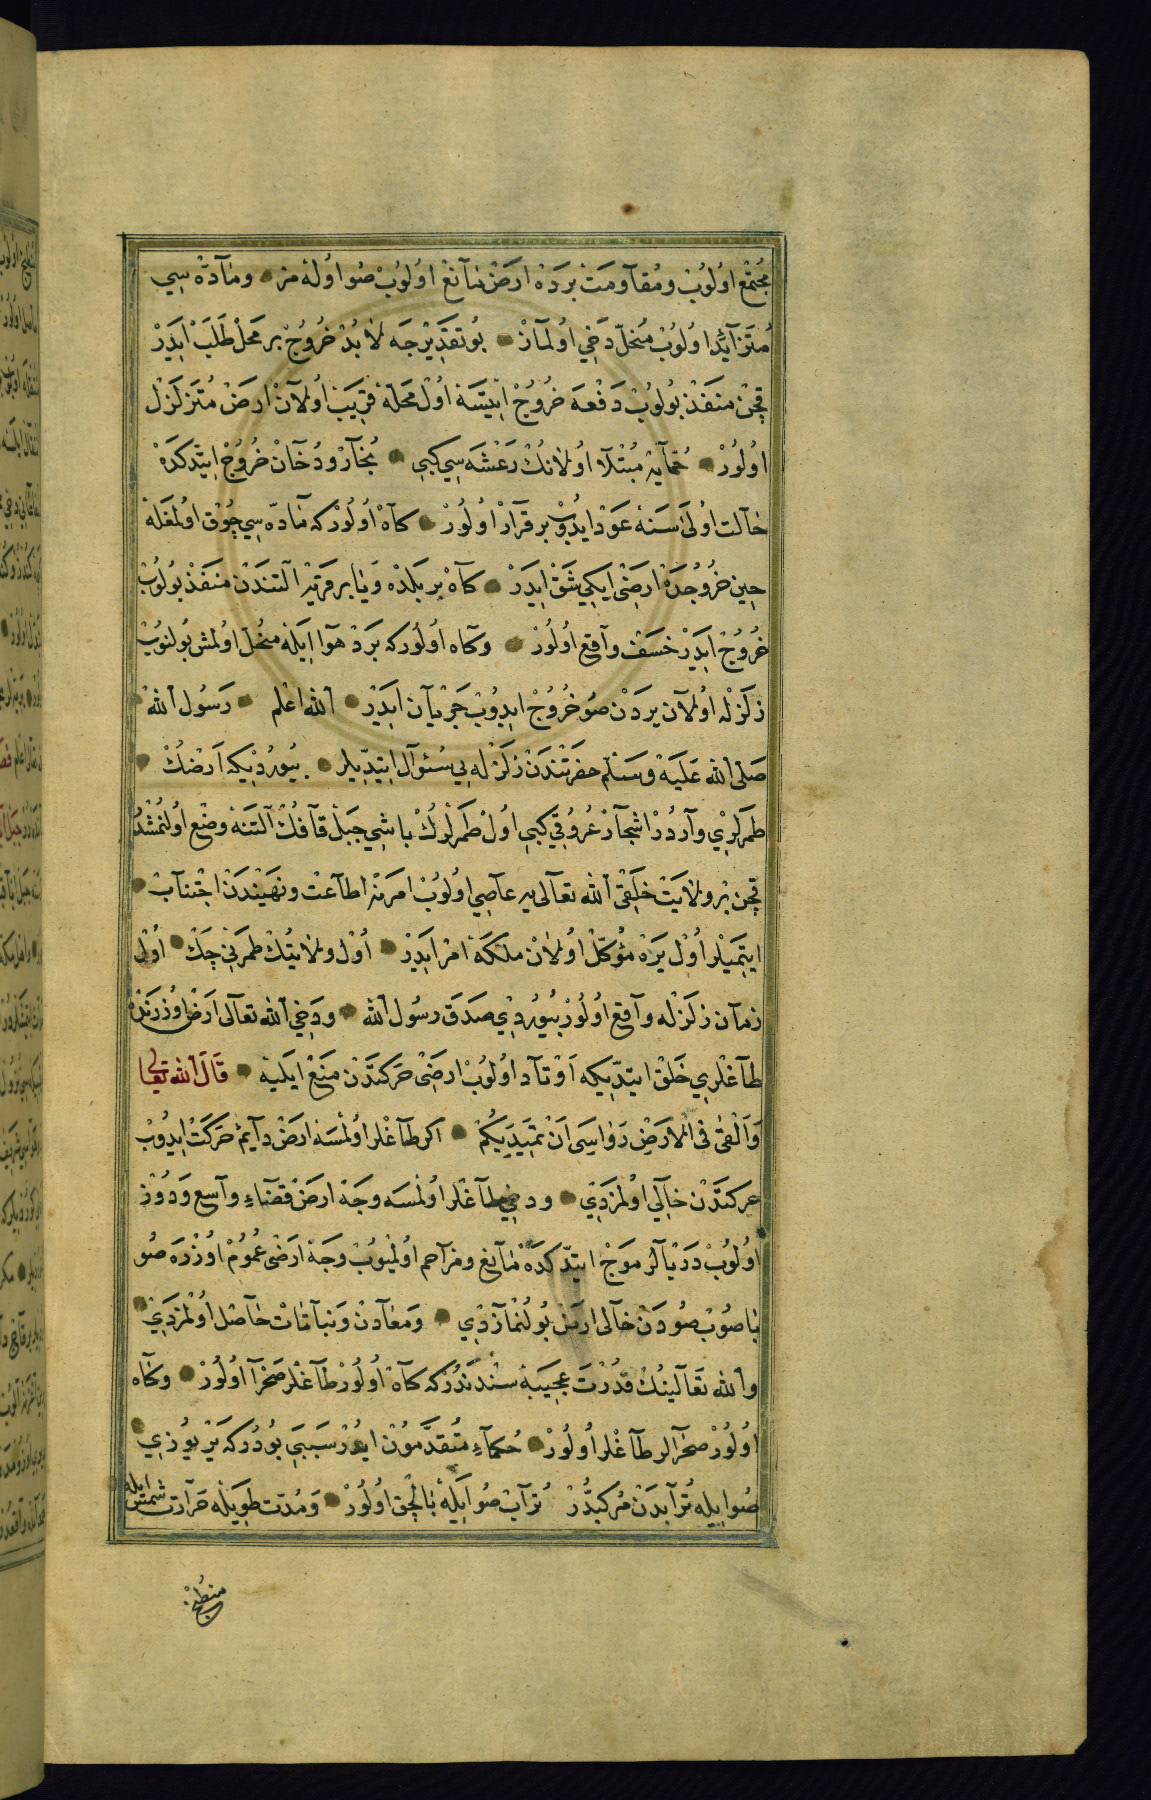 مجتمع اولوب ومقاومت برده ارض مانع اولوب صو اوله مز ومادّه سي
متزايد اولوب منحلّ دخي اولماز بو تقديرجه لابد خروج بر محل طلب ايدر
قچن منفذ بولوب دفعه خروج ايتسه اول محله قريب اولان ارض متزلزل
اولور حمّايه مبتلا اولانك رعشه سي كبي بخار ودخان خروج ايتدكده
حالت اولى سنه عود ايدوب برقرار اولور كاه اولور كه مادّه سي چوق اولمغله
حين خروجده ارضى ايكي شق ايدر كاه بر بلده ويا بر قريه التندن منفذ بولوب
خروج ايدر خسف واقع اولور وكاه اولور كه برد هوا ايله منحل اولمش بولنوب
زلزله اولان يردن صو خروج ايدوب جريان ايدر الله اعلم رسول الله
صلى الله عليه وسلم حضرتندن زلزله يي سئوال ايتديلر بيورديكه ارضك
طمرلري واردر اشجار عروقي كبي اول طمرلرك باشي جبل قافك التنه وضع اولنمشدر
قچن بر ولايت خلقى الله تعالى يه عاصي اولوب امرنه اطاعت ونهيندن اجتناب
ايتميلر اول يره موكل اولان ملكه امر ايدر اول ولايتك طمرني چك اول
زمان زلزله واقع اولور بيوردي صدق رسول الله ودخي الله تعالى ارض اوزرنده
طاغلري خلق ايتديكه اوتاد اولوب ارضى حركتدن منع ايليه قال الله تعالى
وألقى فى الارض رواسى ان تميد بكم اكر طاغلر اولمسه ارض دايم حركت ايدوب
حركتدن خالي اولمزدي ودخي طاغلر اولمسه وجه ارض فضاء واسع ودوز
اولوب دريالر موج ايتدكده مانع ومزاحم اولميوب وجه ارضى عموم اوزره صو
باصوب صودن خالى ارض بولنمازدي ومعادن ونباتات حاصل اولمزدي
والله تعالينك قدرت عجيبه سندندر كه كاه اولور طاغلر صحرا اولور وكاه
اولور صحرالر طاغلر اولور حكماء متقدمون ايدر سببي بودر كه ير يوزي
صو ايله ترابدن مركبدر تراب صو ايله بالچق اولور ومدت طويله حرارت شمس ايله
منطبخ